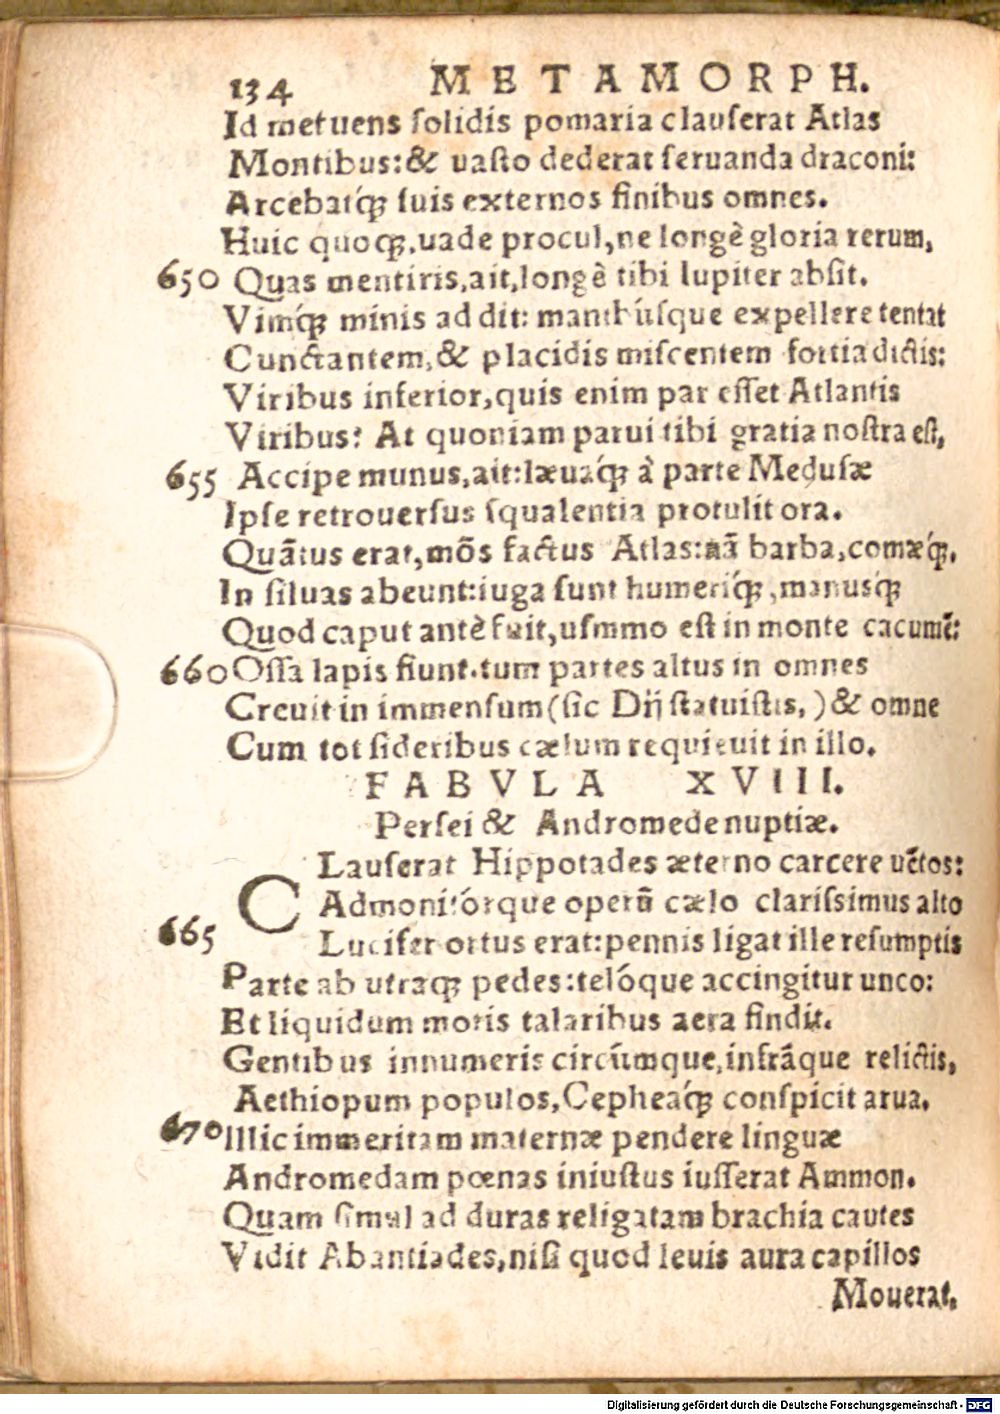 134 METAMORPH.
Id metuens ſolidis pomaria clauſerat Atlas
Montibus:& uaſto dederat ſeruanda draconi:
Arcebatq́; ſuis externos finibus omnes.
Huic quoq;,uade procul,ne longè gloria rerum,
650 Quas mentiris,ait,longè tibi Iupiter abſit.
Vimq́; minis addit: manibúſque expellere tentat
Cunctantem,& placidis miſcentem fortia dictis:
Viribus inferior,quis enim par eſſet Atlantis
Viribus? At quoniam parui tibi gratia noſtra eſt,
655 Accipe munus,ait:læuaq́; à parte Meduſæ
Ipſe retrouerſus ſqualentia protulit ora.
Quātus erat,mōs factus Atlas:nā barba,comæq́;,
In ſiluas abeunt:iuga ſunt humeriq́;,manusq́;
Quod caput antè fuit,uſmmo eſt in monte cacumē:
660 Oſſa lapis fiunt.tum partes altus in omnes
Creuit in immenſum(ſic Dij ſtatuiſtis,)& omne
Cum tot ſideribus cælum requieuit in illo.
FABVLA XVIII.
Perſei & Andromede nuptiæ.
CLauſerat Hippotades æterno carcere uētos:
Admonitórque operū cælo clariſſimus alto
665 Lucifer ortus erat:pennis ligat ille reſumptis
Parte ab utraq; pedes:telóque accingitur unco:
Et liquidum motis talaribus aera findit.
Gentibus innumeris circūmque,infrāque relictis,
Aethiopum populos,Cepheaq́; conſpicit arua.
670 Illic immeritam maternæ pendere linguæ
Andromedam pœnas iniuſtus iuſſerat Ammon.
Quam ſimul ad duras religatam brachia cautes
Vidit Abantiades,niſi quod leuis aura capillos
Mouerat,
Digitalisierung gefördert durch die Deutsche Forschungsgemeinschaft - DFG